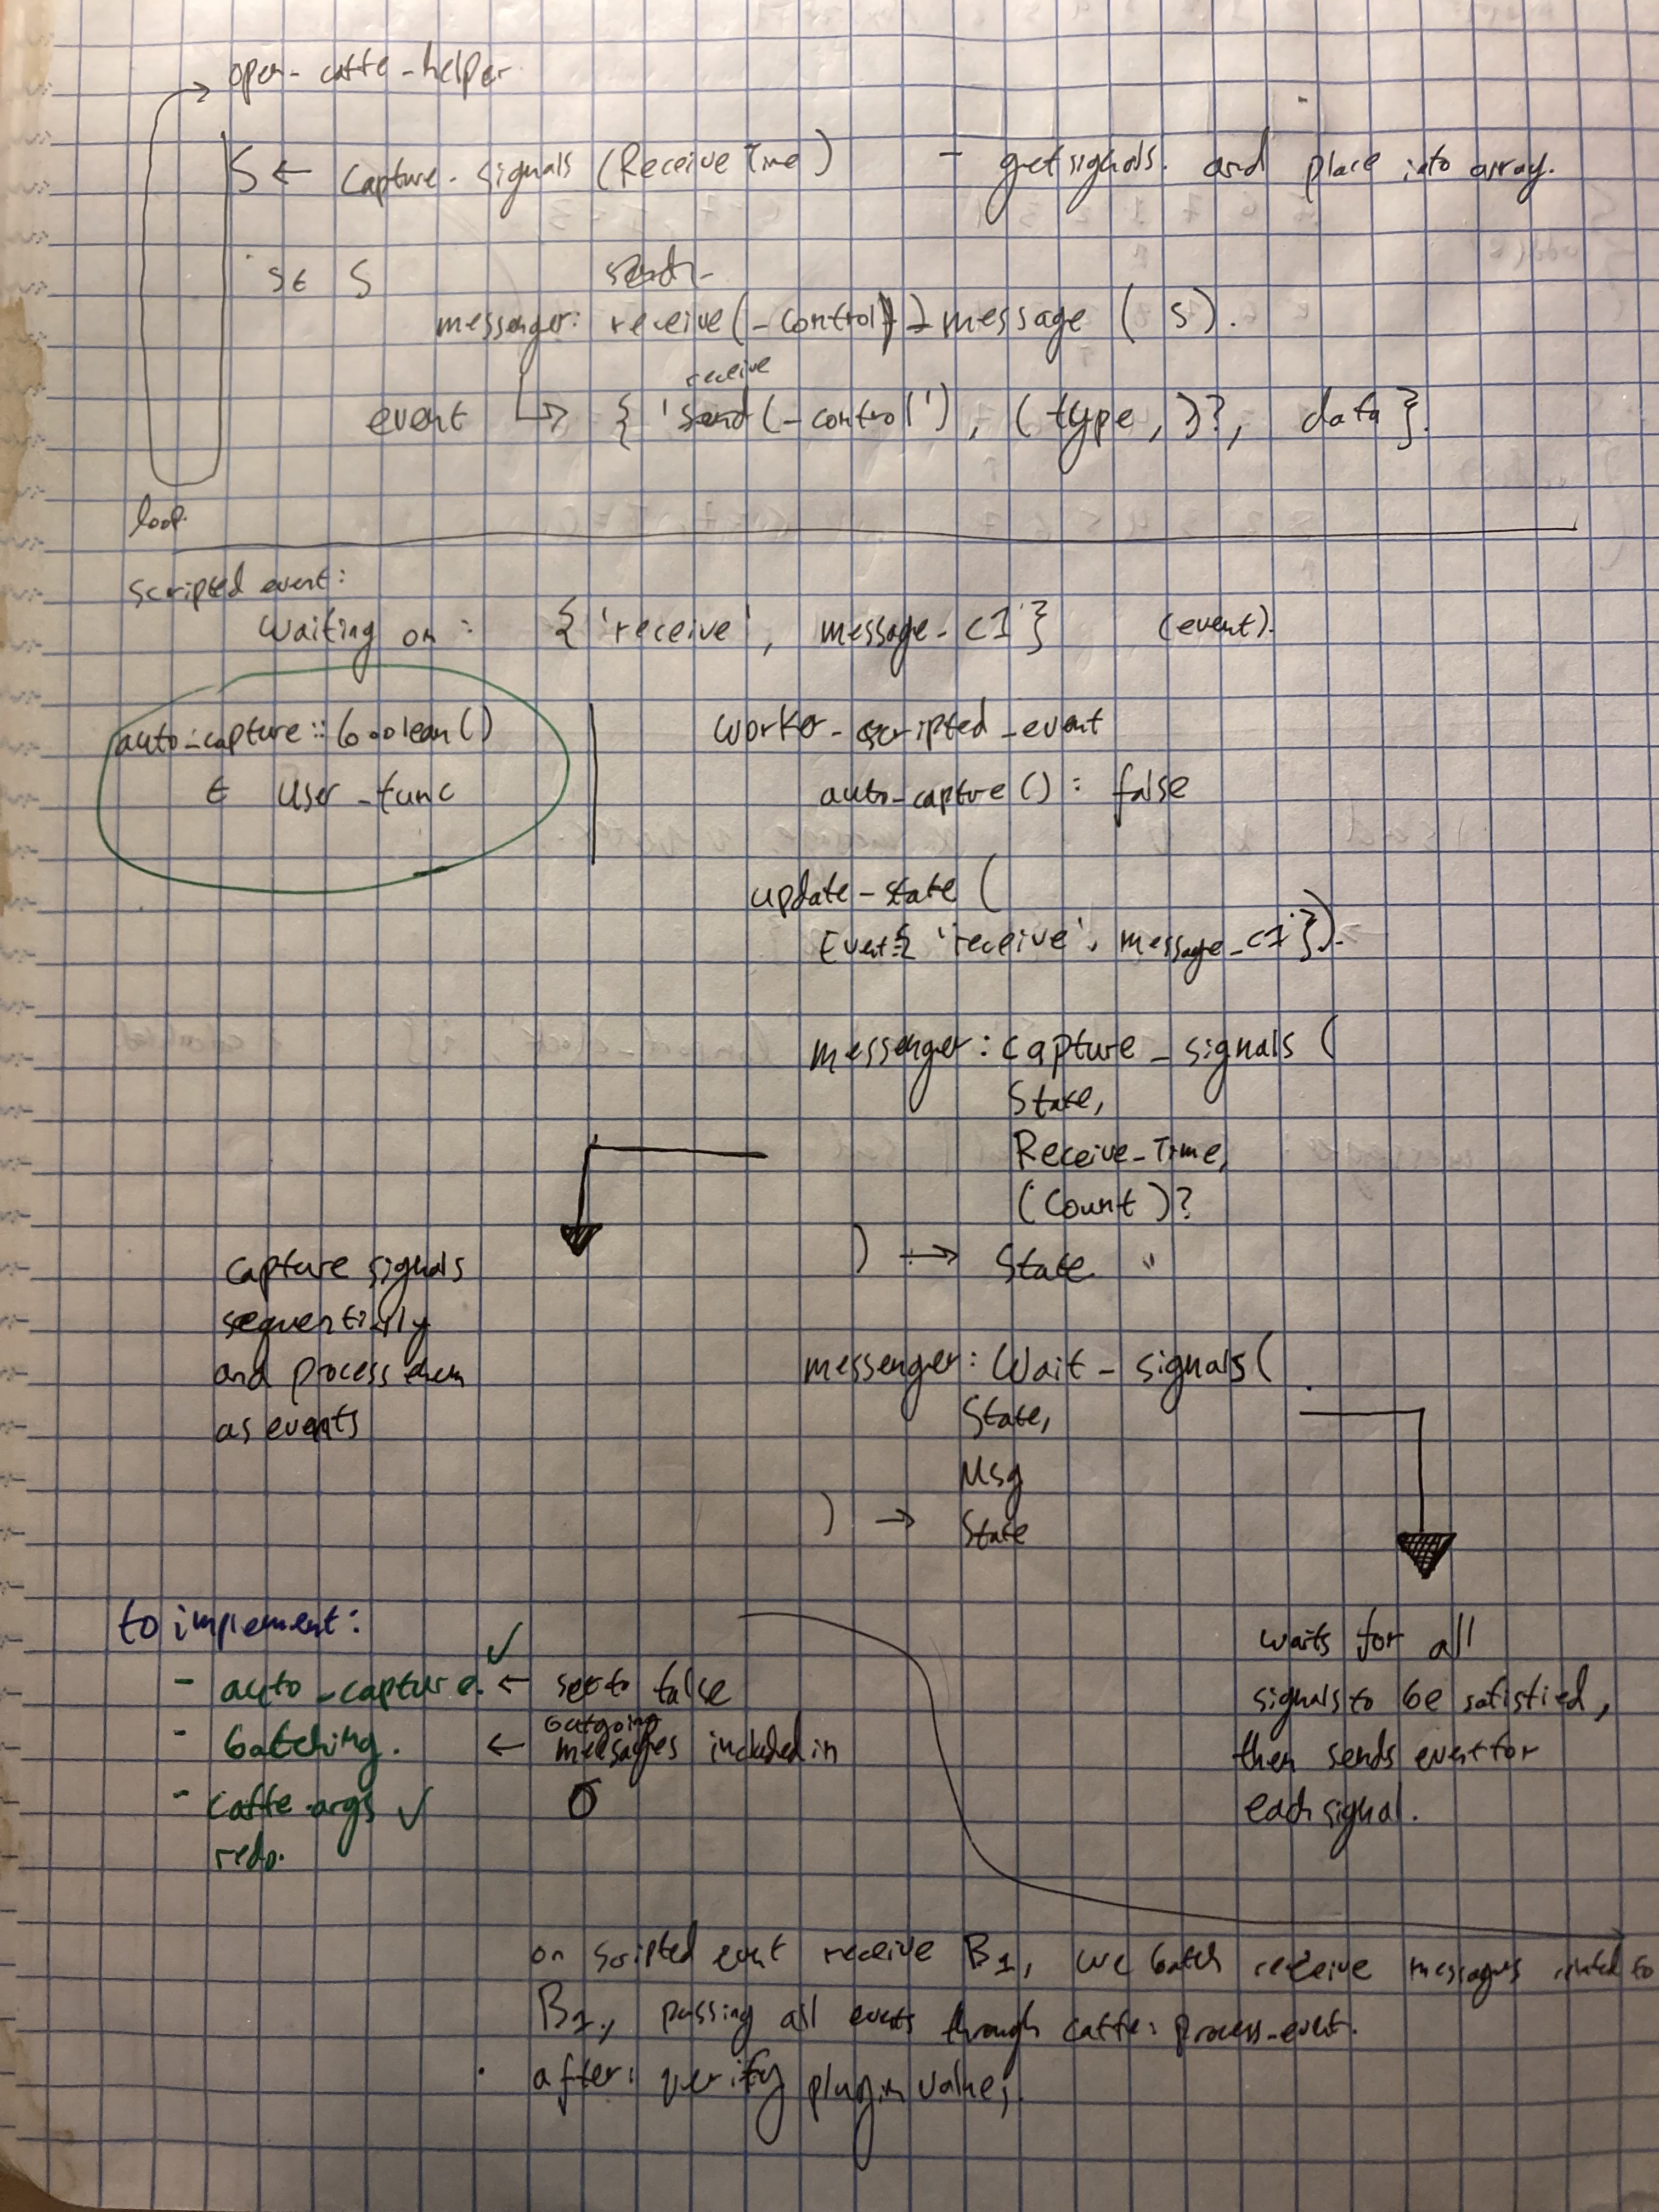 open-caffe-helper
S ← capture-signals (Receive Time) - get signals. and place into array.
s ∈ S
send-
messenger: receive(-control)-message ( s ).
receive
event ↳ { 'send(-control'), (type, )?, data }.
loop.
scripted event:
waiting on: { 'receive', message-c1 } (event).
auto-capture :: boolean()
∈ user-func
worker-scripted-event
auto-capture(): false
update-state (
Event={ 'receive', message-c1 }).
messenger: capture-signals (
State,
Receive-Time,
(Count)?
) → State "
capture signals
sequentially
and process them
as events
messenger: Wait-signals(
State,
Msg
) → State
to implement:
- auto-capture. ✓ ← set to false
outgoing
- batching. ← messages included in
σ
- caffe-args ✓
redo.
waits for all
signals to be satisfied,
then sends event for
each signal.
on scripted event receive B1, we batch receive messages related to
B1, passing all events through caffe: process-event.
after: verify plugin values.